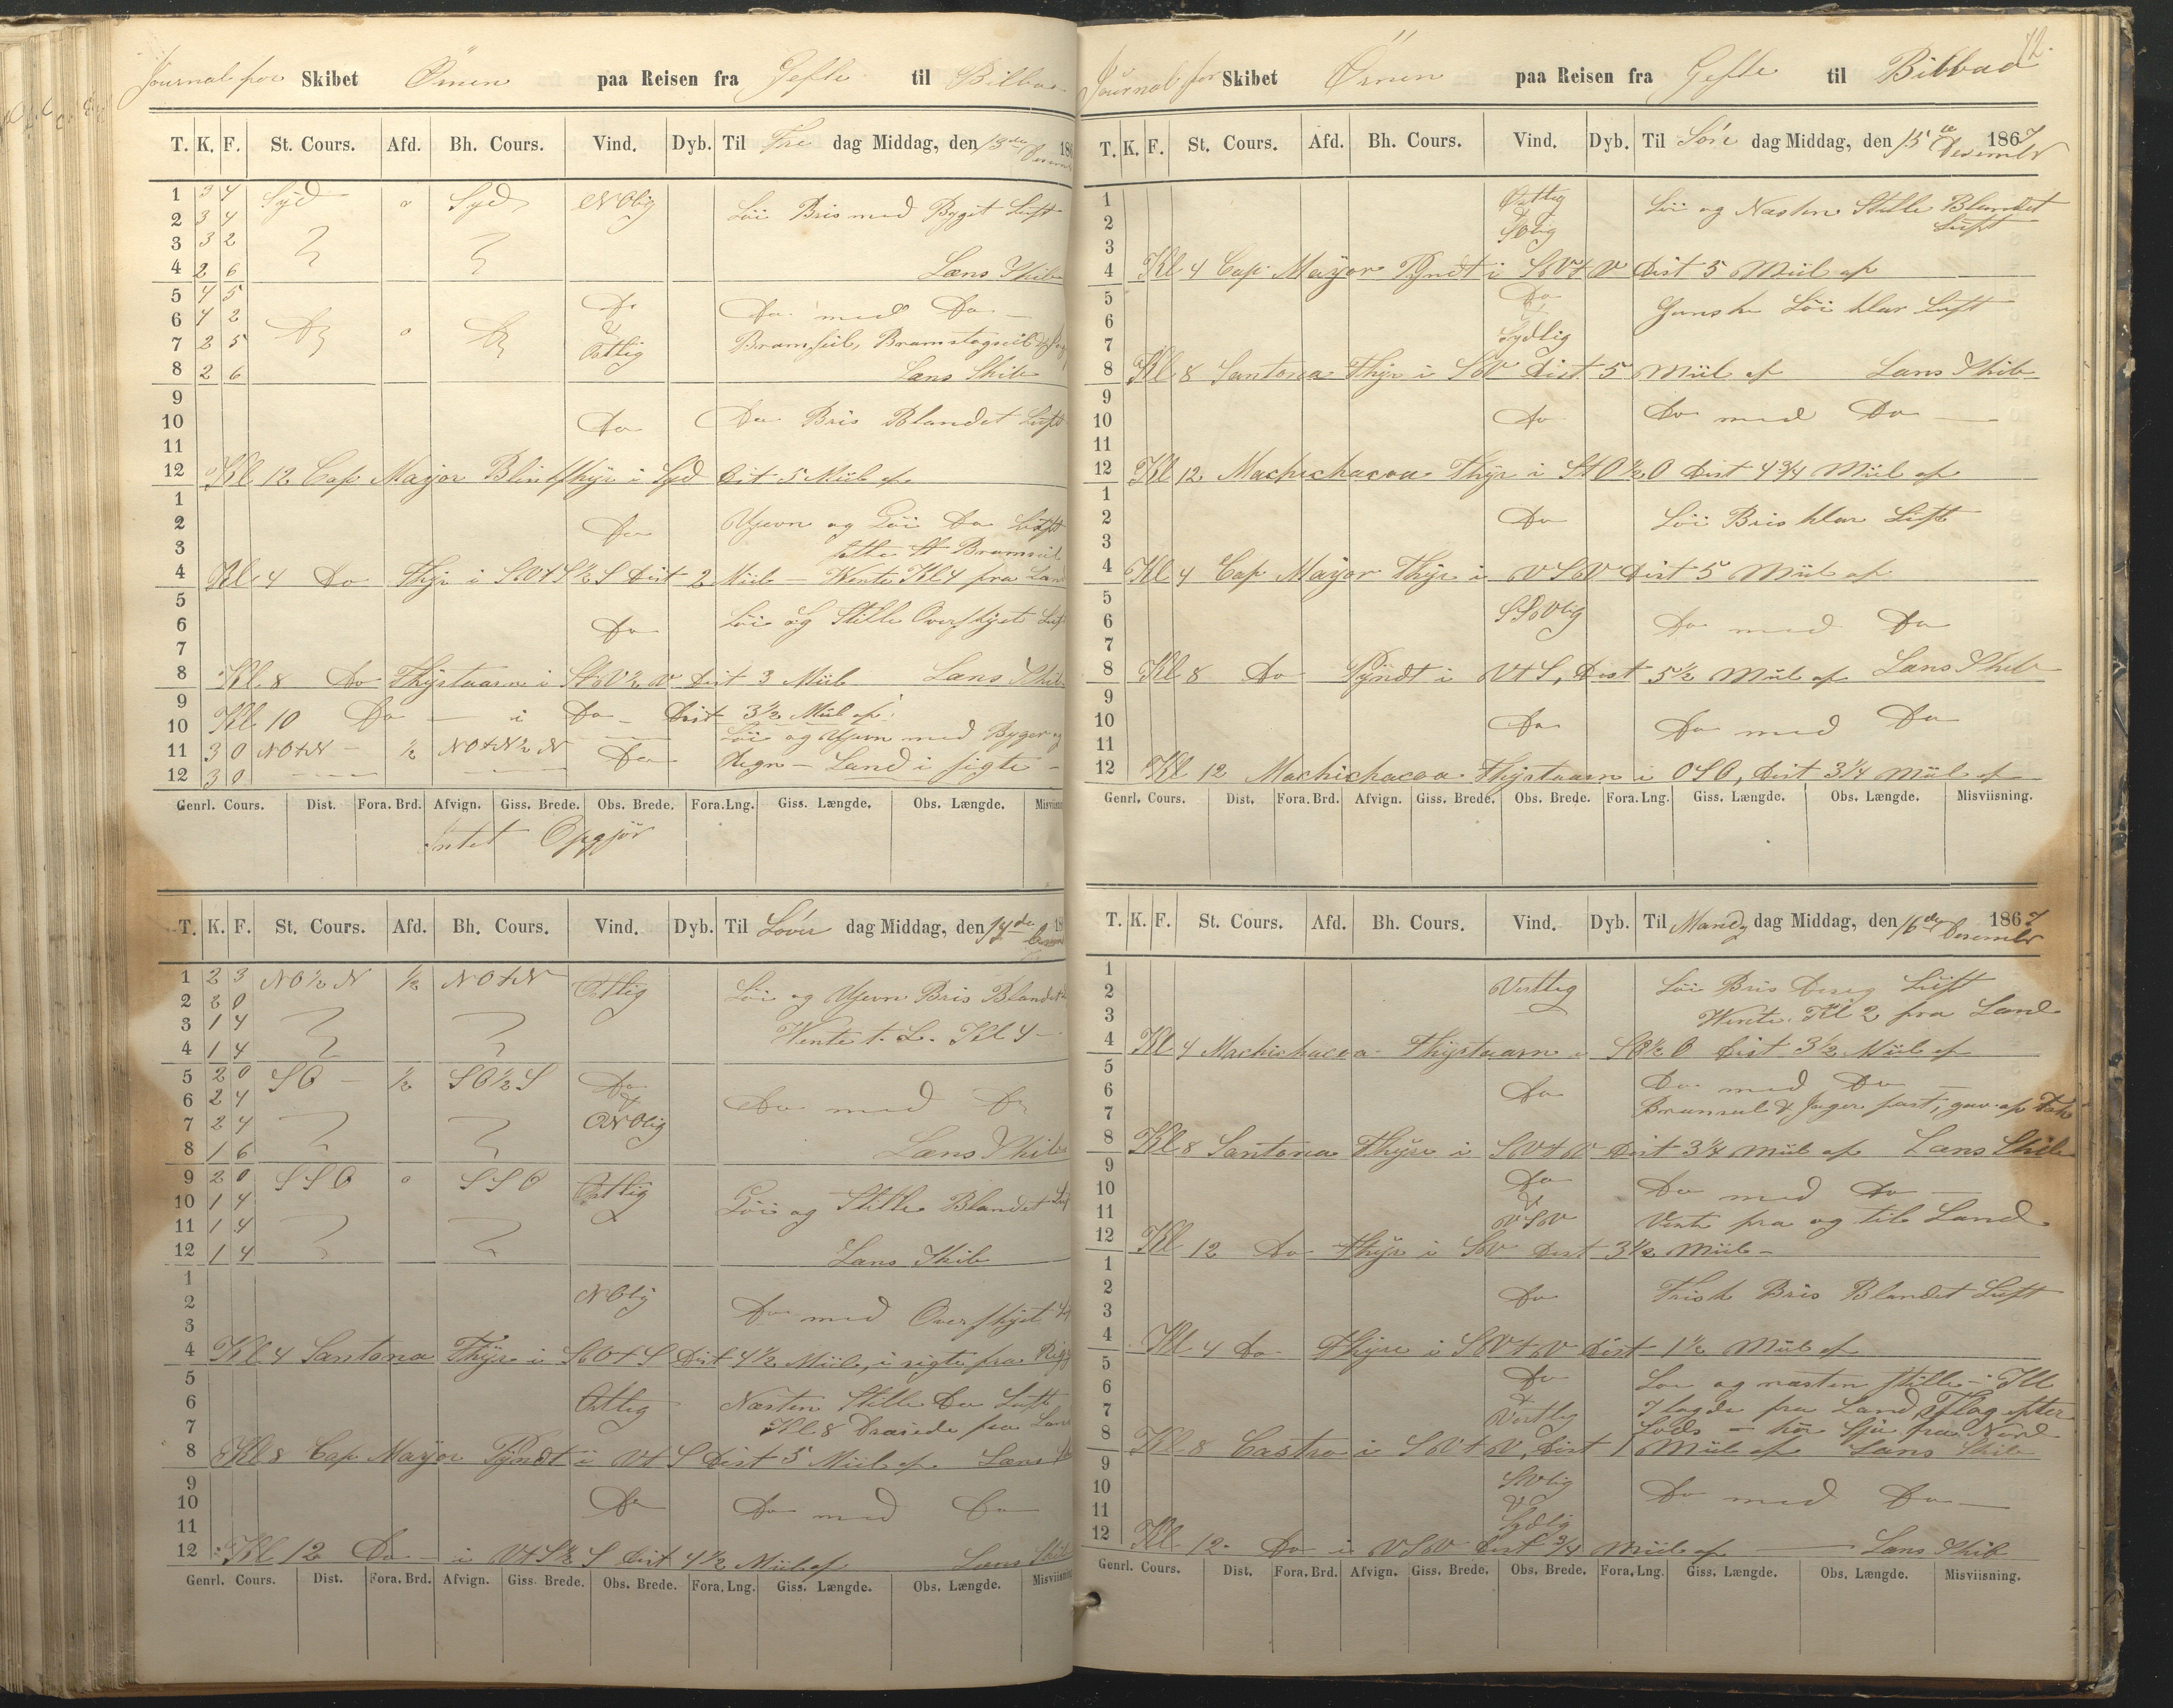 Journal for Skibet Örnen paa Reisen fra Gefle til Bilbao
T. K. F. St. Cours. Afd. Bh. Cours. Vind. Dyb. Til Fre dag Middag, den 13de Desem 186
1 3 4 Syd o Syd NOlig
2 3 4 Löi Bris med Byget Luft
3 3 2
4 2 6 Læns Skib
5 4 5 Do
6 4 2 Do o Do & Do med Do
7 2 5 Östlig Bramseil, Bramstagseil
8 2 6 Læns Skib
9
10 Do Do Bris Blandet Luft
11
12 Kl 12 Cap Mayor Blinkfhyr i Syd Dist 5 Miil af
1
2 Do Ujevn og Löi Do Luft
3 satte St Bramseil
4 Kl 4 Do Fhyr i SVtS½S Dist 2 Miil - Wente Kl 4 fra Land
5
6 Do Löi og Stille Overskyet Luft
7
8 Kl 8 Do Fhyrtaarn i StV½V Dist 3 Miil Læns Skib
9
10 Kl 10 Do - i Do - Dist 3½ Miil af
Löi og Ujevn med Byger og
11 3 0 NOtN - ½ NOtN½N Do Regn - Land i sigte -
12 3 0
Genrl. Cours. Dist. Fora. Brd. Afvign. Giss. Brede. Obs. Brede. Fora. Lng. Giss. Længde. Obs. Længde. Misviisn
Intet Opgjör
T. K. F. St. Cours. Afd. Bh. Cours. Vind. Dyb. Til Löver dag Middag, den 14de 18
1 2 3 NO½N ½ NOtN Östlig Löi og Ujevn Bris Blandet
2 2 0
3 1 4 Wente t. L. Kl 4 -
4 1 4
5 2 0 SO - ½ SO½S Do
6 2 4 & Do med Do
7 2 4 ONOlig
8 1 6 Læns Skib
9 2 0 SSO o SSO Östlig
10 1 4 Löi og Stille Blandet Luf
11 1 4
12 1 4 Læns Skib
1 NOlig
2 Do med Overskyet
3
4 Kl 4 Santona Fhyr i SVtS Dist 4½ Miile, i sigte fra Rig
5
6 Östlig Næsten Stille Do Luft
7 Kl 8 Draiede fra Land
8 Kl 8 Cap Mayor Pyndt i VtS Dist 5 Miil af Læns
9
10 Do Do med Do
11
12 Kl 12 Do - i VtS½S Dist 4½ Miil af Læns Skib
Genrl. Cours. Dist. Fora. Brd. Afvign. Giss. Brede. Obs. Brede. Fora. Lng. Giss. Længde. Obs. Længde. Misviisning
72.
Journal for Skibet Örnen paa Reisen fra Gefle til Bilbao
T. K. F. St. Cours. Afd. Bh. Cours. Vind. Dyb. Til Sön dag Middag, den 15de Desember 1867
1 Östlig Löi og Næsten Stille Blandet
2 SOlig Luft
3
4 Kl 4 Cap Mayor Pyndt i SVtV Dist 5 Miil af
5 Do Ganske Löi klar Luft
6 &
7 Sydlig
8 Kl 8 Santona Fhyr i SV Dist 5 Miil af Læns Skib
9
10 Do Do med Do
11
12 Kl 12 Machichacoa Fhyr i StO½O Dist 4¾ Miil af
1
2 Do Löi Bris klar Luft
3
4 Kl 4 Cap Mayor Fhyr i VSV Dist 5 Miil af
5
6 SSVlig Do med Do
7
8 Kl 8 Do Pyndt i VtS, Dist 5½ Miil af Læns Skib
9
10 Do Do med Do
11
12 Kl 12 Machichacoa Fhyrtaarn i OSO, Dist 3¼ Miil af
Genrl. Cours. Dist. Fora. Brd. Afvign. Giss. Brede. Obs. Brede. Fora. Lng. Giss. Længde. Obs. Længde. Misviisning.
T. K. F. St. Cours. Afd. Bh. Cours. Vind. Dyb. Til Mandg dag Middag, den 16de Desember 1867
1
2 Vestlig Löi Bris Diseg Luft
3 Wente Kl 2 fra Land
4 Kl 4 Machichacoa Fhyrtaarn i SO½O Dist 3½ Miil af
5
6 Do Do med Do
7 Bramseil & Jager fast,
8 Kl 8 Santona Fhyr i SVtV Dist 3¼ Miil af Læns Skib
9
10 Do Do med Do
11 & VSV Vente fra og til Land
12 Kl 12 Do Fhyr i SV Dist 3½ Miil -
1
2 Do Frisk Bris Blandet Luft
3
4 Kl 4 Do Fhyr i SVtV Dist 1½ Miil af
5 Do Löi og næsten stille - Kl
6 & 7 lagde fra Land, Flag efter
7 Vestlig Lods - hör Sjö fra Nord
8 Kl 8 Castro i SVtV, Dist 1 Miil af Læns Skib
9
10 SVlig Do med Do
11 & Sydlig
12 Kl 12. Do i VSV Dist ¾ Miil af - Læns Skib
Genrl. Cours. Dist. Fora. Brd. Afvign. Giss. Brede. Obs. Brede. Fora. Lng. Giss. Længde. Obs. Længde. Misviisning.